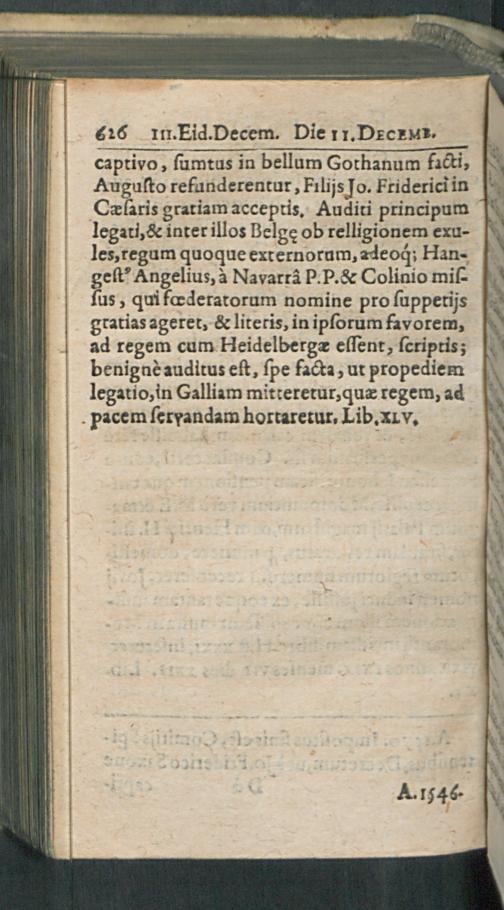 626 III.Eid.Decem. Die 11.DECEMB.
captivo, sumtus in bellum Gothanum facti,
Augusto refunderentur, Filijs Jo. Friderici in
Cæsaris gratiam acceptis. Auditi principum
legati,& inter illos Belgę ob relligionem exu-
les,regum quoque externorum, adeoq́; Han-
gestꝰ Angelius, à Navarrâ P.P.& Colinio mis-
sus, qui fœderatorum nomine pro suppetijs
gratias ageret, & literis, in ipsorum favorem,
ad regem cum Heidelbergæ essent, scriptis;
benignè auditus est, spe facta, ut propediem
legatio,in Galliam mitteretur,quæ regem, ad
pacem servandam hortaretur. Lib.XLV.
A.1546.